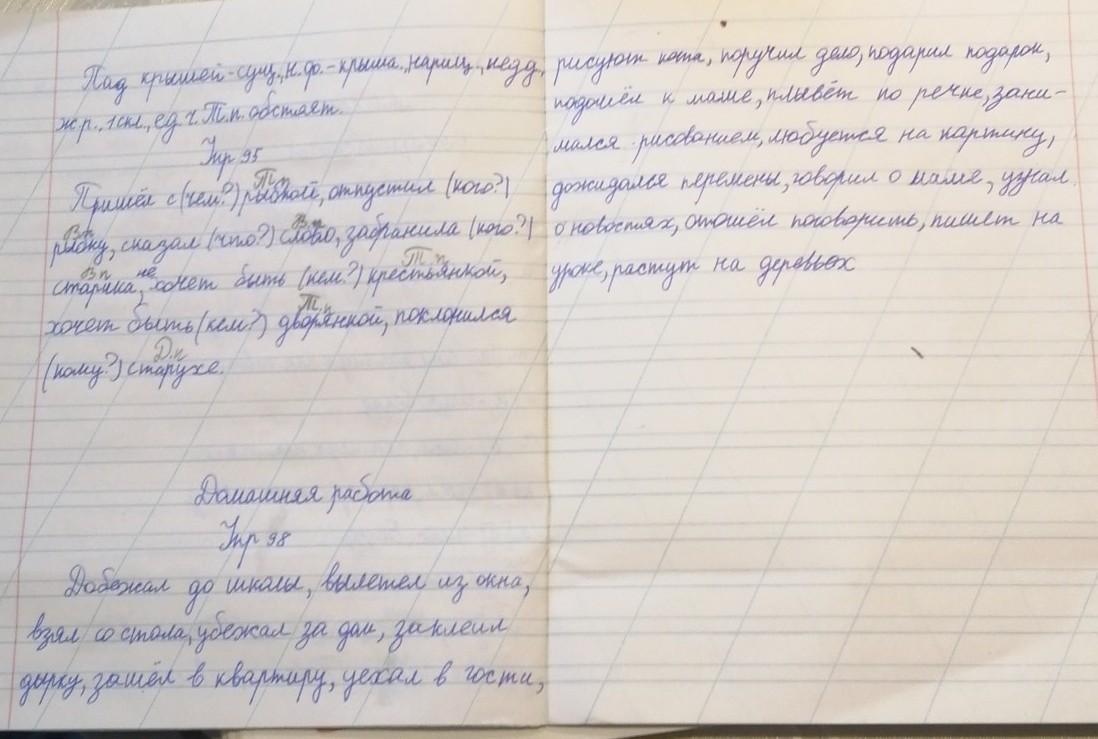 Под крышей-сущ., н.ф.-крыша., нариц., неод.,
ж.р., 1скл., ед.ч. Т.п. обстоят.
Упр 95
Т.п
Пришёл с (чем?) рыбкой, отпустил (кого?)
В.п В.п
рыбку, сказал (что?) слово, забранила (кого?)
В.п Т.п
старика, не хочет быть (кем?) крестьянкой,
Т.п
хочет быть (кем?) дворянкой, поклонился
Д.п
(кому?) старухе.
Домашняя работа
Упр 98
Добежал до школы, вылетел из окна,
взял со стола, убежал за дом, заклеил
дырку, зашёл в квартиру, уехал в гости,
рисуют кота, поручил дело, подарил подарок,
подошёл к маме, плывёт по речке, зани-
мался рисованием, любуется на картину,
дожидался перемены, говорил о маме, узнал
о новостях, отошёл поговорить, пишет на
уроке, растут на деревьех